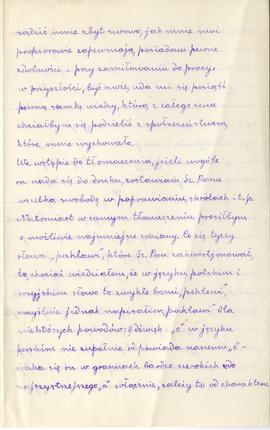 sądzić mnie zbyt surowo, jak mnie moi
profesorowie zapewniają, posiadam pewne
zdolności i przy zamiłowaniu do pracy
w przyszłości, być może, uda mi się posiąść
pewną sumkę wiedzy, którą z całego serca
chciałbym się podzielić z społeczeństwem,
które mnie wychowało.
We wstępie do tłomaczenia, jeżeli wogóle
on nada się do druku, zostawiam Sz. Panu
wszelką swobodę w poprawianiu, skrótach i t.p.
Natomiast w samym tłomaczeniu prosiłbym
o możliwie najmniejsze zmiany. Co się tyczy
słowa „pahlawi", które Sz. Pan zakwestjonował,
to chociaż wiedziałem, że w języku polskim i
rosyjskim słowo to zwykle brzmi „pehlewi",
umyślnie jednak napisałem „pahlawi" dla
niektórych powodów: dźwięk „é" w języku
perskim nie zupełnie odpowiada naszemu „e" -
waha się on w granicach bardzo szerokich do
najczystszego „a" włącznie, zależy to od charakteru